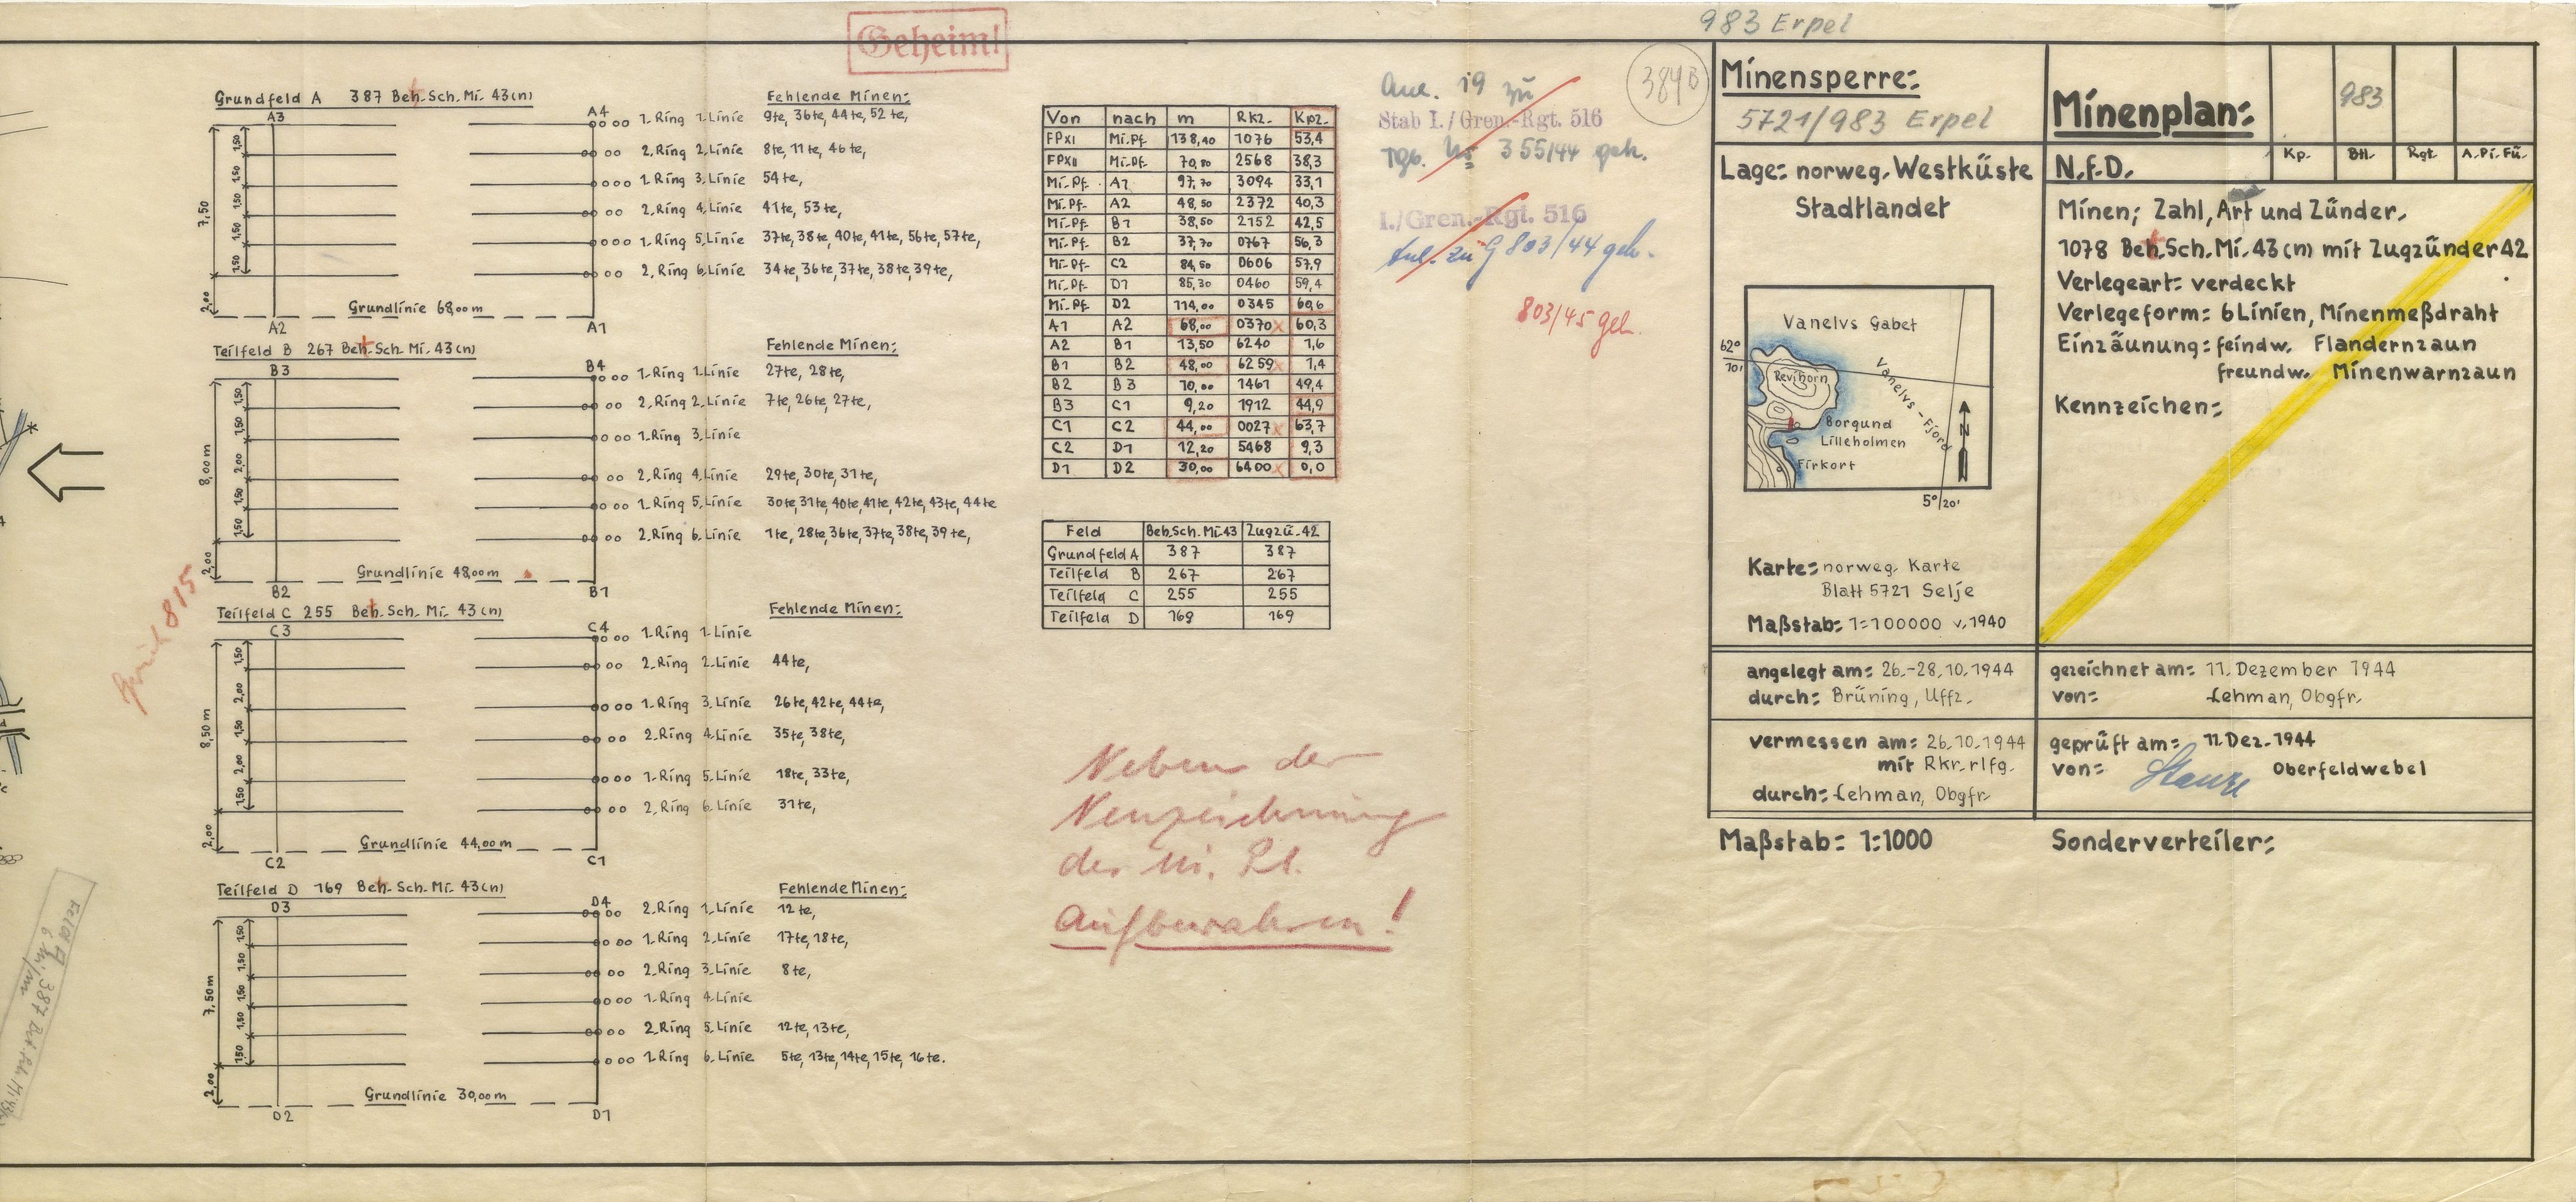 983 Erpel
Geheim!
Grundfeld A 387 Bet. Sch. Mi. 43(n)
Fehlende Minen:
A3
A4
1. Ring 1. Linie 9te, 36te, 44te, 52te,
2. Ring 2. Linie 8te, 11te, 46te,
1. Ring 3. Linie 54te,
2. Ring 4. Linie 41te, 53te,
1. Ring 5. Linie 37te, 38te, 40te, 41te, 56te, 57te,
2. Ring 6. Linie 34te, 36te, 37te, 38te, 39te,
1,50
1,50
1,50
1,50
1,50
7,50
2,00
Grundlinie 68,00 m
A2
A1
Teilfeld B 267 Bet. Sch. Mi. 43(n)
Fehlende Minen:
B3
B4
1. Ring 1. Linie 27te, 28te,
2. Ring 2. Linie 7te, 26te, 27te,
1. Ring 3. Linie
2. Ring 4. Linie 29te, 30te, 31te,
1. Ring 5. Linie 30te, 31te, 40te, 41te, 42te, 43te, 44te
2. Ring 6. Linie 1te, 28te, 36te, 37te, 38te, 39te,
1,50
1,50
2,00
1,50
1,50
8,00 m
2,00
Grundlinie 48,00 m
B2
B1
815
Teilfeld C 255 Bet. Sch. Mi. 43(n)
Fehlende Minen:
C3
C4
1. Ring 1. Linie
2. Ring 2. Linie 44te,
1. Ring 3. Linie 26te, 42te, 44te,
2. Ring 4. Linie 35te, 38te,
1. Ring 5. Linie 18te, 33te,
2. Ring 6. Linie 31te,
1,50
2,00
1,50
2,00
1,50
8,50 m
2,00
Grundlinie 44,00 m
C2
C1
Teilfeld D 169 Bet. Sch. Mi. 43(n)
Fehlende Minen:
D3
D4
2. Ring 1. Linie 12te,
1. Ring 2. Linie 17te, 18te,
2. Ring 3. Linie 8te,
1. Ring 4. Linie
2. Ring 5. Linie 12te, 13te,
1. Ring 6. Linie 5te, 13te, 14te, 15te, 16te.
1,50
1,50
1,50
1,50
1,50
7,50 m
2,00
Grundlinie 30,00 m
D2
D1
Feld A 387
Von nach m Rkz. Kpz.
FPXI Mi-Pf. 138,40 1076 53,4
FPXII Mi-Pf. 70,80 2568 38,3
Mi-Pf. A1 97,70 3094 33,1
Mi-Pf. A2 48,50 2372 40,3
Mi-Pf. B1 38,50 2152 42,5
Mi-Pf. B2 37,70 0767 56,3
Mi-Pf. C2 84,50 0606 57,9
Mi-Pf. D1 85,30 0460 59,4
Mi-Pf. D2 114,00 0345 60,6
A1 A2 68,00 0370 x 60,3
A2 B1 13,50 6240 1,6
B1 B2 48,00 6259 x 1,4
B2 B3 10,00 1461 49,4
B3 C1 9,20 1912 44,9
C1 C2 44,00 0027 x 63,7
C2 D1 12,20 5468 9,3
D1 D2 30,00 6400 x 0,0
Feld Beh.Sch.Mi.43 Zugzü.42
Grundfeld A 387 387
Teilfeld B 267 267
Teilfeld C 255 255
Teilfeld D 169 169
Neben der
Neuzeichnung
des Mi. Pl.
Aufbewahren!
Anl. 19 zu
Stab I./Gren.-Rgt. 516
Tgb. No 355/44 geh.
I./Gren.-Rgt. 516
Anl. zu G 803/44 geh.
803/45 geh.
384B
Minensperre:
5721/983 Erpel
Lage: norweg. Westküste
Stadtlandet
Vanelvs Gabet
62°
10'
Revihorn
Vanelvs-Fjord
Borgund
Lilleholmen
Firkort
N
5° 20'
Karte: norweg. Karte
Blatt 5721 Selje
Maßstab: 1:100000 v. 1940
angelegt am: 26.-28.10.1944
durch: Brüning, Uffz.
vermessen am: 26.10.1944
mit Rkr. rlfg.
durch: Lehman, Obgfr.
Maßstab: 1:1000
Minenplan:
983
Kp. Btl. Rgt. A.Pi.Fü.
N.f.D.
Minen; Zahl, Art und Zünder.
1078 Bet.Sch.Mi.43(n) mit Zugzünder 42
Verlegeart: verdeckt
Verlegeform: 6 Linien, Minenmeßdraht
Einzäunung: feindw. Flandernzaun
freundw. Minenwarnzaun
Kennzeichen:
gezeichnet am: 11. Dezember 1944
von: Lehman, Obgfr.
geprüft am: 11. Dez. 1944
von: Oberfeldwebel
Sonderverteiler: